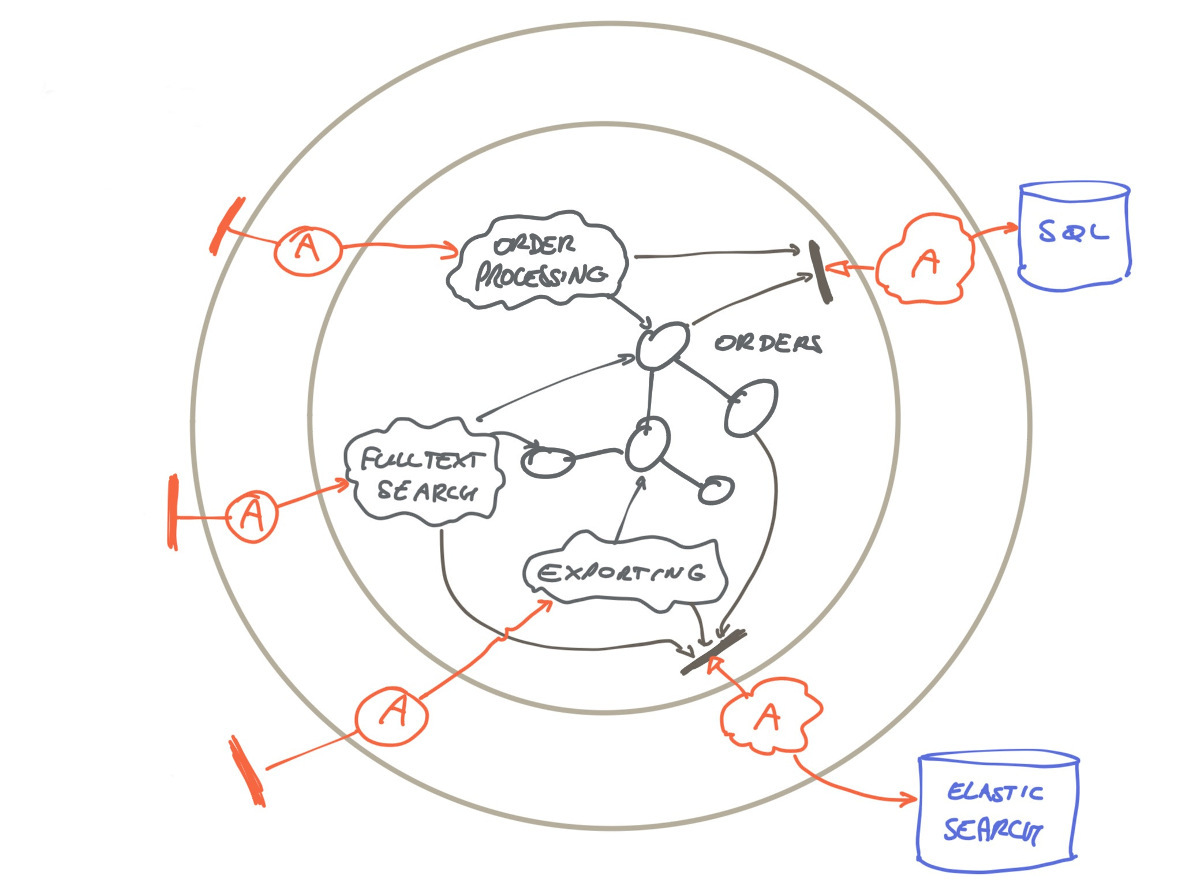 A
ORDER
PROCESSING
A
SQL
ORDERS
FULLTEXT
SEARCH
A
EXPORTING
A
A
ELASTIC
SEARCH